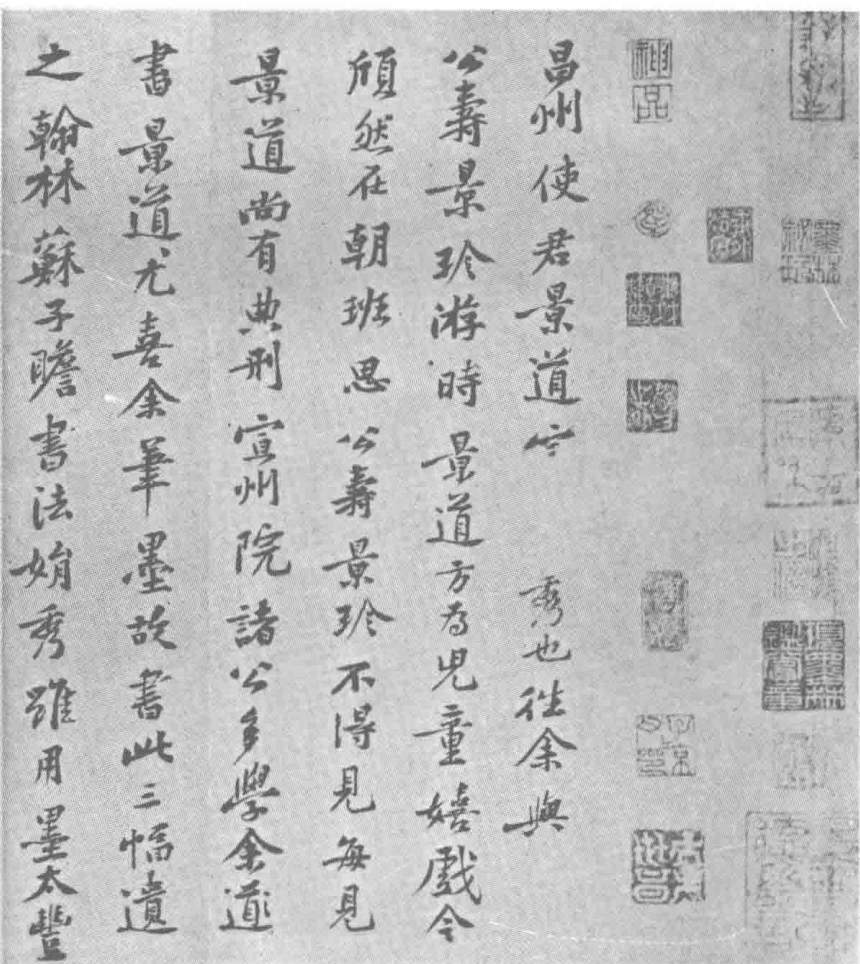 神品
昌州使君景道宗秀也徃余與
公壽景珍游時景道方為兒童嬉戲今
頎然在朝班思公壽景珍不得見每見
景道尚有典刑宣州院諸公多學余道
書景道尤喜余筆墨故書此三幅遺
之翰林蘇子瞻書法娟秀雖用墨太豐